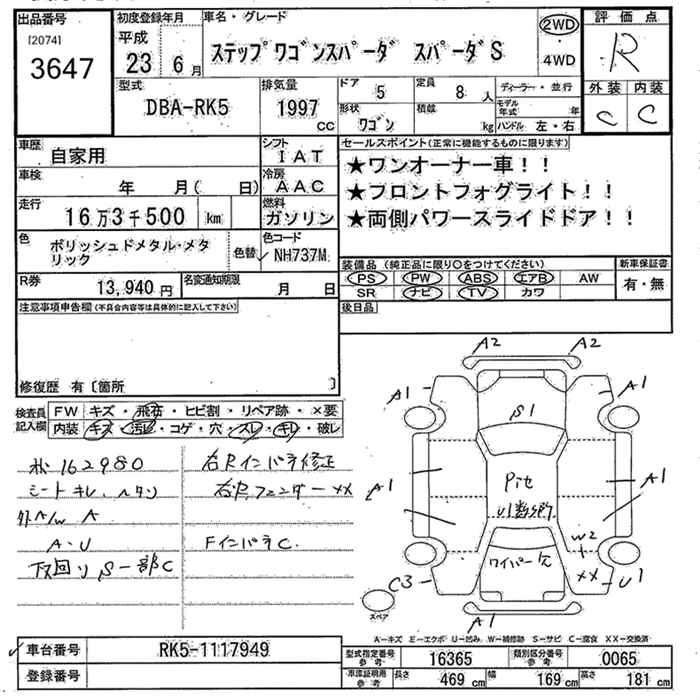 出品番号
[2074]
3647
初度登録年月
平成
23 6月
車名・グレード
ステップワゴンスパーダ スパーダS
2WD
・
4WD
評価点
R
外装 内装
C C
型式
DBA-RK5
排気量
1997
CC
ドア 5
定員 8 人
形状 ワゴン
積載 kg
ディーラー・並行
モデル年式 年
ハンドル 左・右
車歴
自家用
シフト
IAT
車検
年 月( 日)
冷房
AAC
走行
16万3千500 km
燃料
ガソリン
色
ポリッシュドメタル・メタリック
色替
色コード
NH737M
R券
13,940円
名変通知期限
月 日
セールスポイント(正常に機能するものに限ります)
★ワンオーナー車!!
★フロントフォグライト!!
★両側パワースライドドア!!
装備品(純正品に限り○をつけてください)
PS PW ABS エアB AW
SR ナビ TV カワ
新車保証書
有・無
後日品
注意事項申告欄(不具合内容等は具体的に記入して下さい)
修復歴 有〔箇所 〕
検査員記入欄
FW キズ・飛石・ヒビ割・リペア跡・×要
内装 キズ・汚れ・コゲ・穴・スレ・キレ・破レ
162980
シートキレ、ヘタリ
外A/W A
A・U
下回りS一部C
右Rインパネ修正
右R.フェンダーXX
FインパネC.
A2 A2
A1 A1
S1
A1 A1
Pite
U1数ヶ所
W2
ワイパー穴
XX U1
C3
A1
スペア
A―キズ E―エクボ U―凹み W―補修跡 S―サビ C―腐食 XX―交換済
車台番号
RK5-1117949
登録番号
型式指定番号
参考
16365
類別区分番号
参考
0065
車庫証明用
参考
長さ 469 cm
幅 169 cm
高さ 181 cm